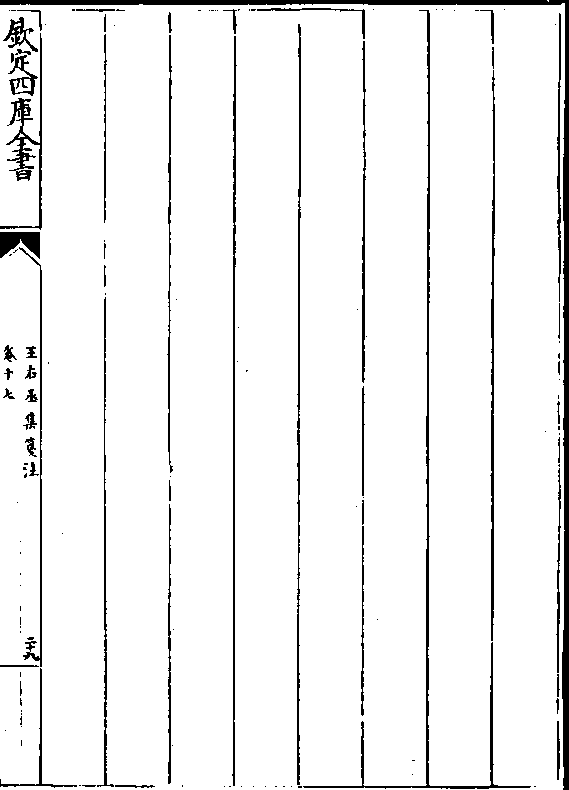 欽定四庫全書
王右丞集箋注
卷十七
二十九